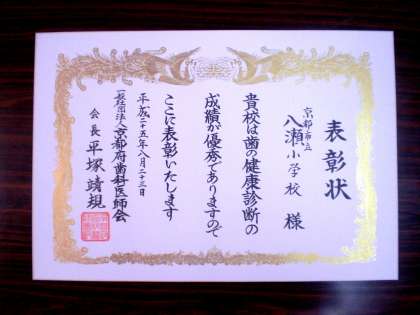 表彰状
京都市立
八瀬小学校 様
貴校は歯の健康診断の
成績が優秀でありますので
ここに表彰いたします
平成二十五年八月二十三日
一般社団法人京都府歯科医師会
会長 平塚靖規